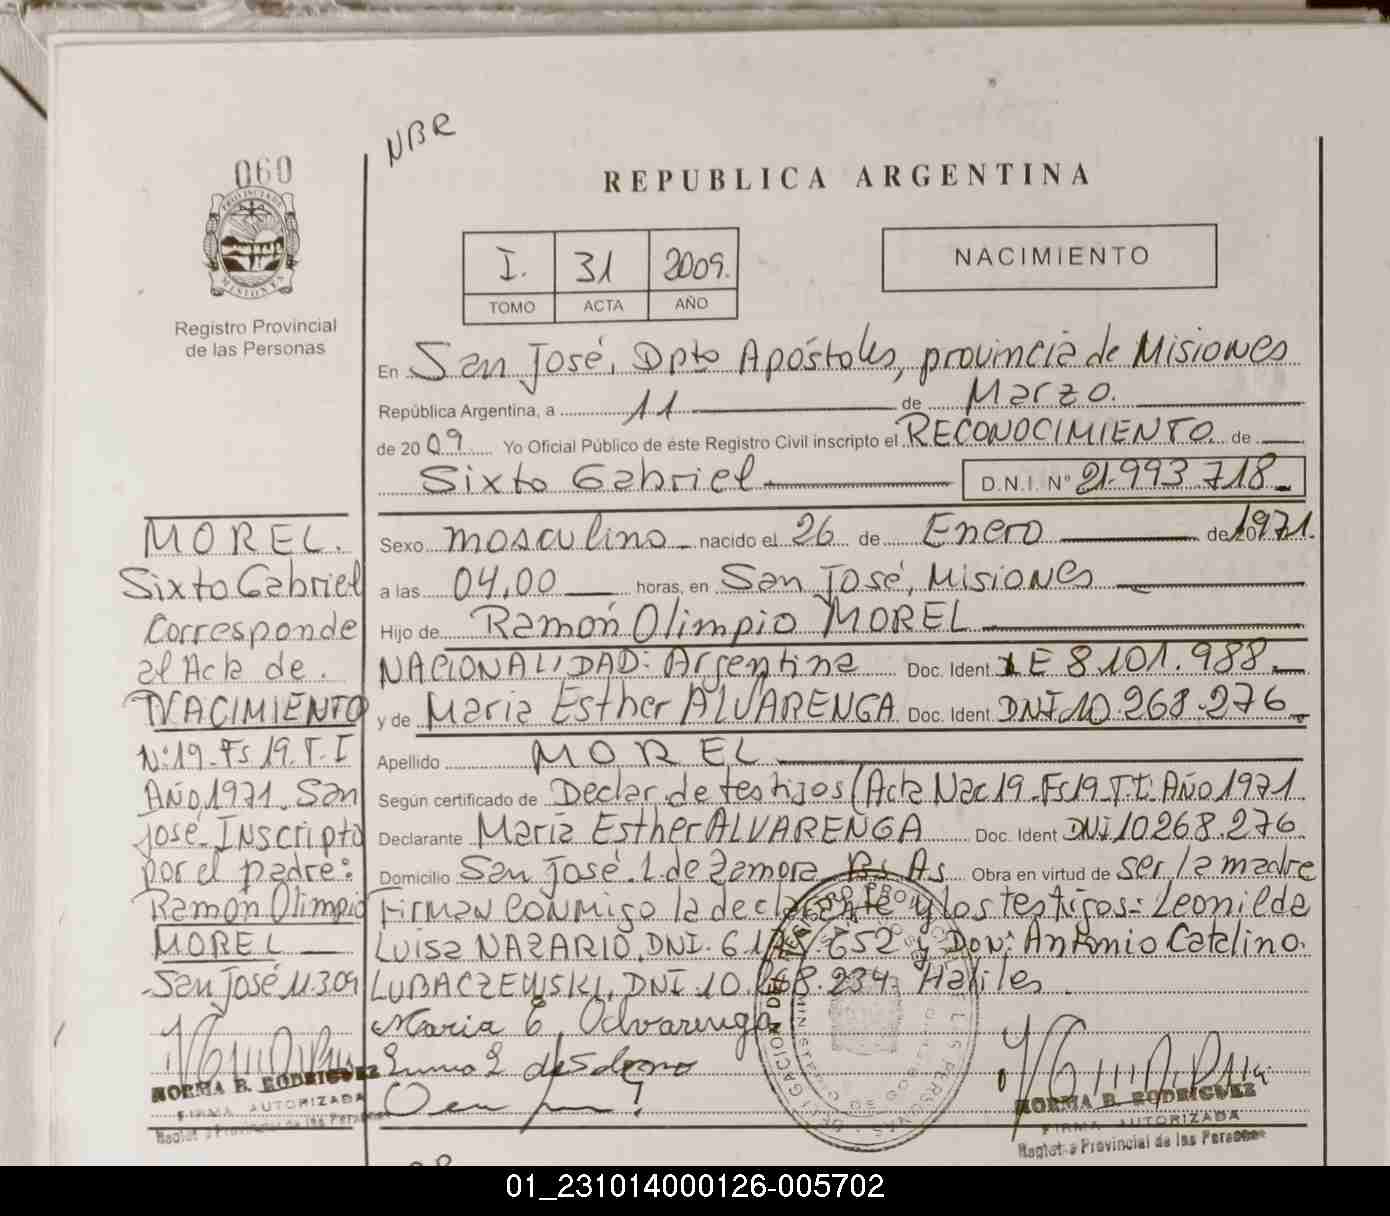 NBR
060
PROVINCIA DE
MISIONES
Registro Provincial
de las Personas
REPUBLICA ARGENTINA
I. 31 2009.
TOMO ACTA AÑO
NACIMIENTO
En San José, Dpto Apóstoles, provincia de Misiones
República Argentina, a 11 de Marzo.
de 2009 Yo Oficial Público de este Registro Civil inscripto el RECONOCIMIENTO de
Sixto Gabriel D.N.I. Nº 21.993.718
Sexo masculino nacido el 26 de Enero de 1971.
a las 04,00 horas, en San José, Misiones
Hijo de Ramón Olimpio MOREL
NACIONALIDAD: Argentina Doc. Ident. LE 8.101.988
y de Maria Esther ALVARENGA Doc. Ident. DNI 10.268.276
Apellido MOREL
Según certificado de Declar. de testigos (Acta Nac 19. Fs 19. T. I. Año 1971
Declarante María Esther ALVARENGA Doc. Ident DNI 10268.276
Domicilio San José. L. de Zamora Bs. As. Obra en virtud de ser la madre
Firman conmigo la declarante y los testigos: Leonilda
Luisa NAZARIO, DNI. 6. y Don: Antonio Catalino
LUBACZEWSKI, DNI. 10. 234. Hábiles
Maria E. Alvarenga
MOREL.
Sixto Gabriel
Corresponde
al Acta de.
NACIMIENTO
Nº 19. Fs 19. T. I
Año 1971. San
José. Inscripto
por el padre:
Ramón Olimpio
MOREL
San José 11.3.09
NORMA B. RODRIGUEZ
FIRMA AUTORIZADA
NORMA B. RODRIGUEZ
FIRMA AUTORIZADA
Registro Provincial de las Personas
01_231014000126-005702